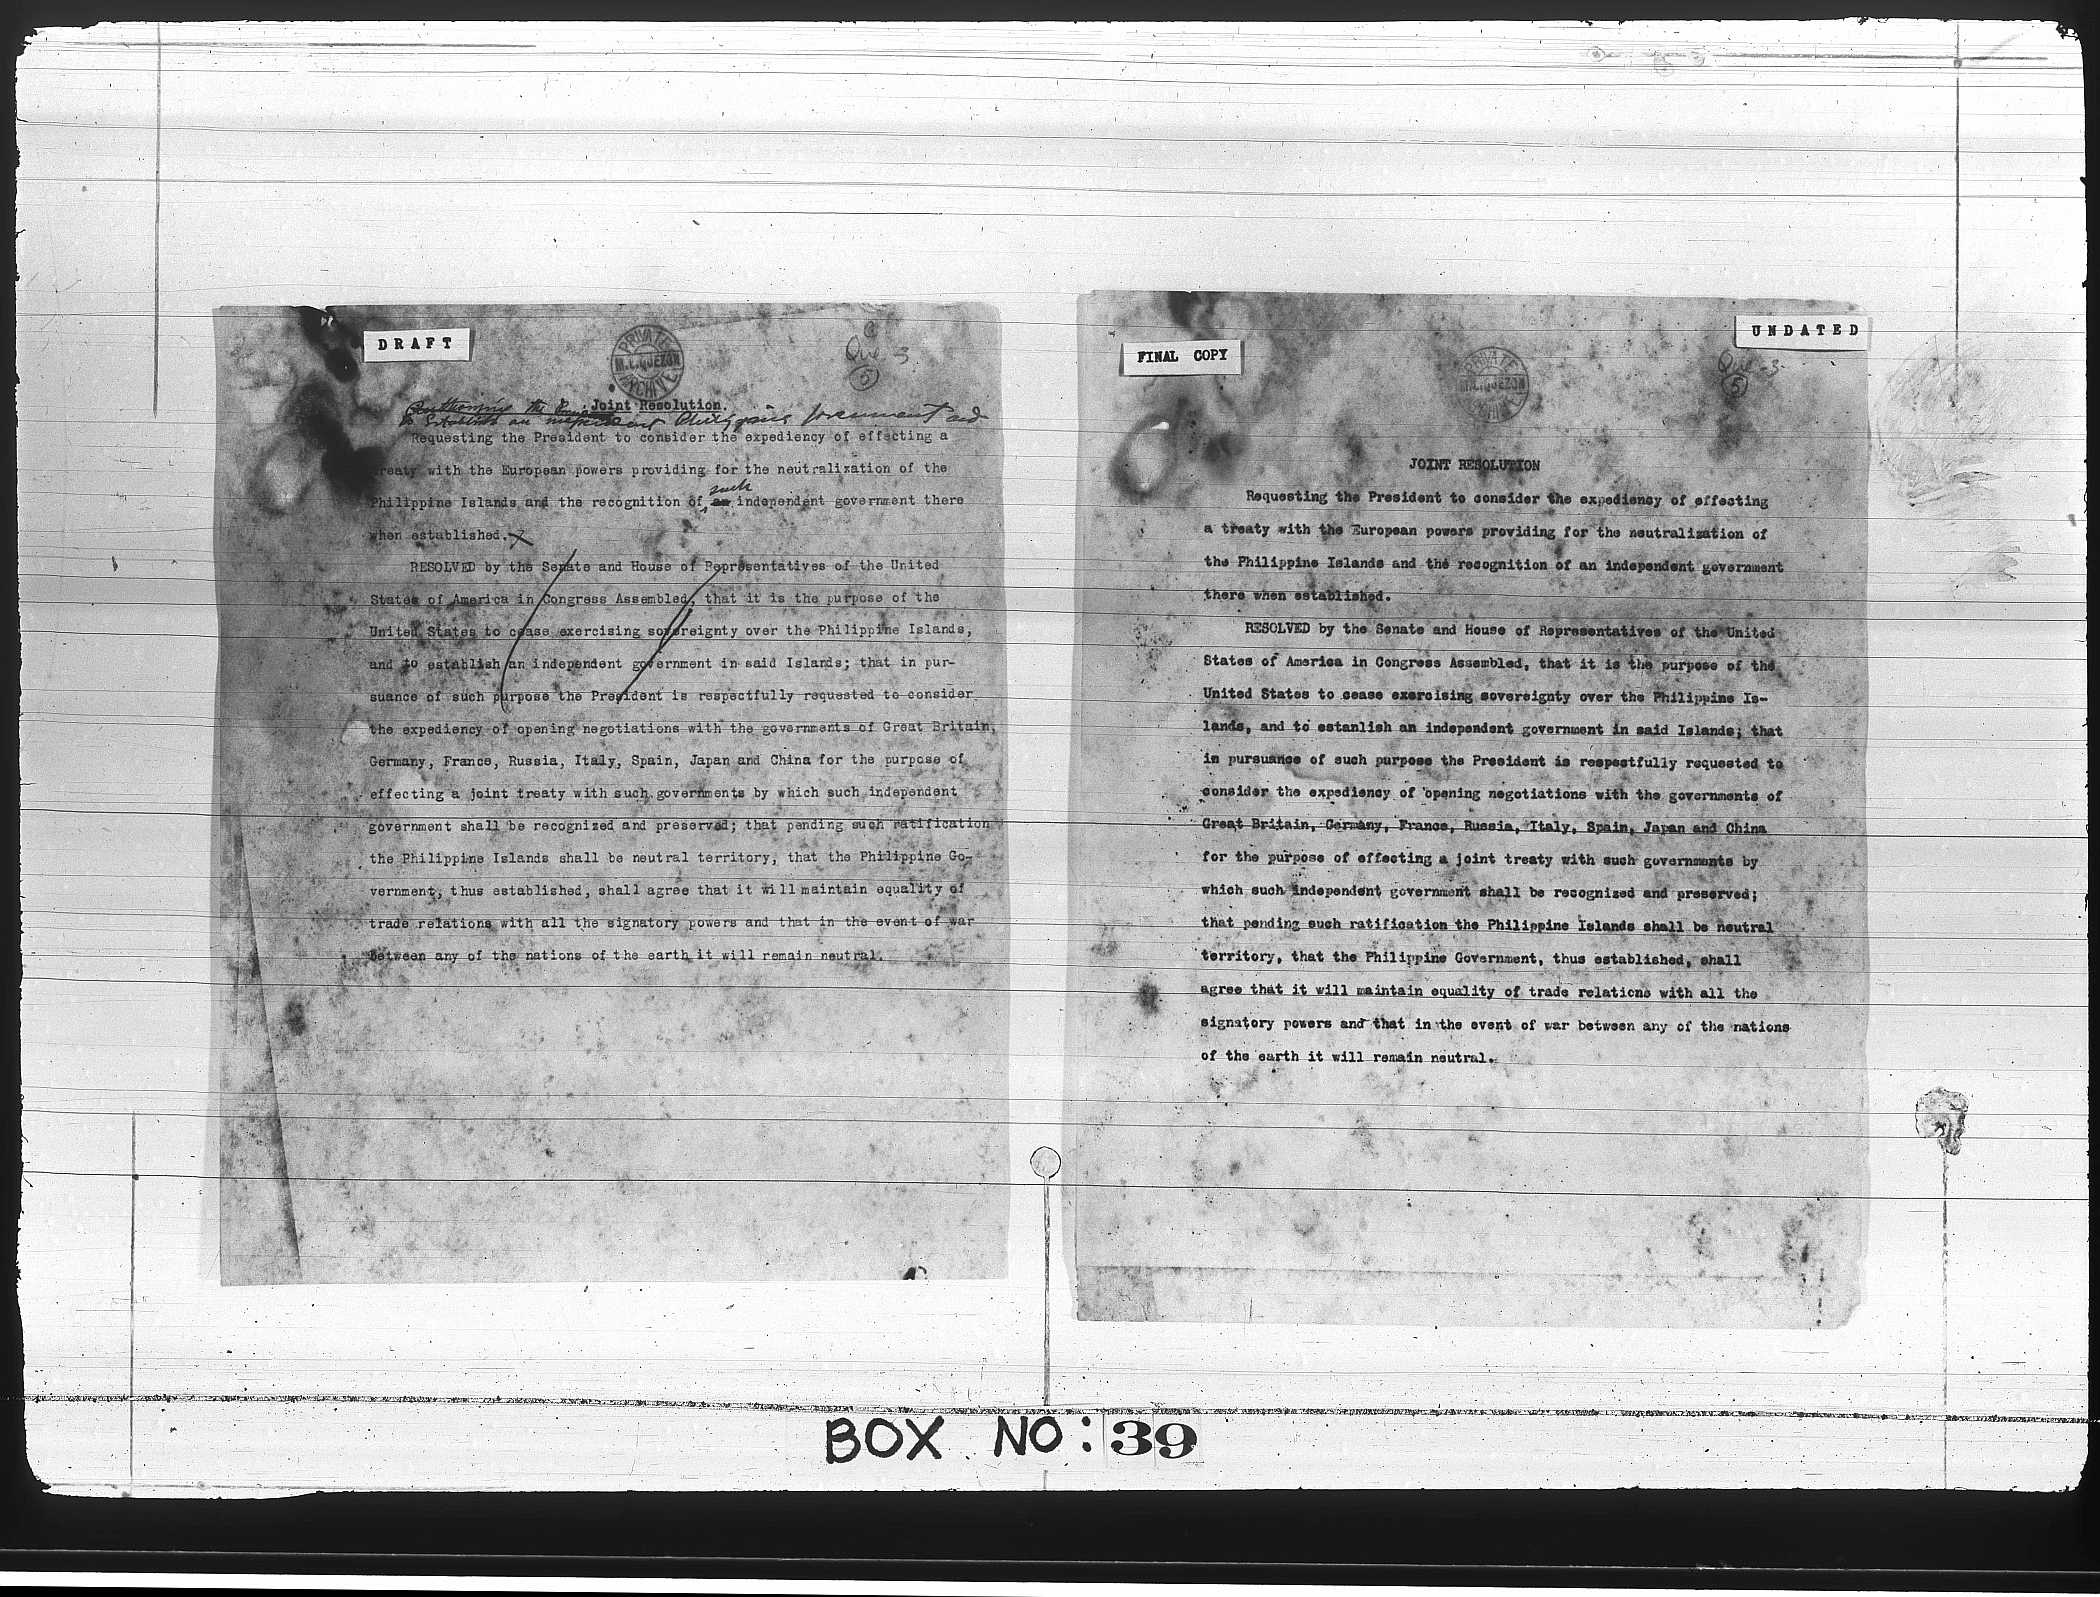 DRAFT
PRIVATE
M.L.QUEZON
ARCHIVE
Que 3
5
Joint Resolution.
Authorizing the
to establish an independent Philippine Government and
Requesting the President to consider the expediency of effecting a
treaty with the European powers providing for the neutralization of the
such
Philippine Islands and the recognition of an independent government there
when established.
RESOLVED by the Senate and House of Representatives of the United
States of America in Congress Assembled, that it is the purpose of the
United States to cease exercising sovereignty over the Philippine Islands,
and to establish an independent government in said Islands; that in pur-
suance of such purpose the President is respectfully requested to consider
the expediency of opening negotiations with the governments of Great Britain,
Germany, France, Russia, Italy, Spain, Japan and China for the purpose of
effecting a joint treaty with such governments by which such independent
government shall be recognized and preserved; that pending such ratification
the Philippine Islands shall be neutral territory, that the Philippine Go-
vernment, thus established, shall agree that it will maintain equality of
trade relations with all the signatory powers and that in the event of war
between any of the nations of the earth it will remain neutral.
FINAL COPY
UNDATED
PRIVATE
M.L.QUEZON
ARCHIVE
Que 3
5
JOINT RESOLUTION
Requesting the President to consider the expediency of effecting
a treaty with the European powers providing for the neutralization of
the Philippine Islands and the recognition of an independent government
there when established.
RESOLVED by the Senate and House of Representatives of the United
States of America in Congress Assembled, that it is the purpose of the
United States to cease exercising sovereignty over the Philippine Is-
lands, and to estanlish an independent government in said Islands; that
in pursuance of such purpose the President is respestfully requested to
consider the expediency of opening negotiations with the governments of
Great Britain, Germany, France, Russia, Italy, Spain, Japan and China
for the purpose of effecting a joint treaty with such governments by
which such independent government shall be recognized and preserved;
that pending such ratification the Philippine Islands shall be neutral
territory, that the Philippine Government, thus established, shall
agree that it will maintain equality of trade relations with all the
signatory powers and that in the event of war between any of the nations
of the earth it will remain neutral.
BOX NO: 39